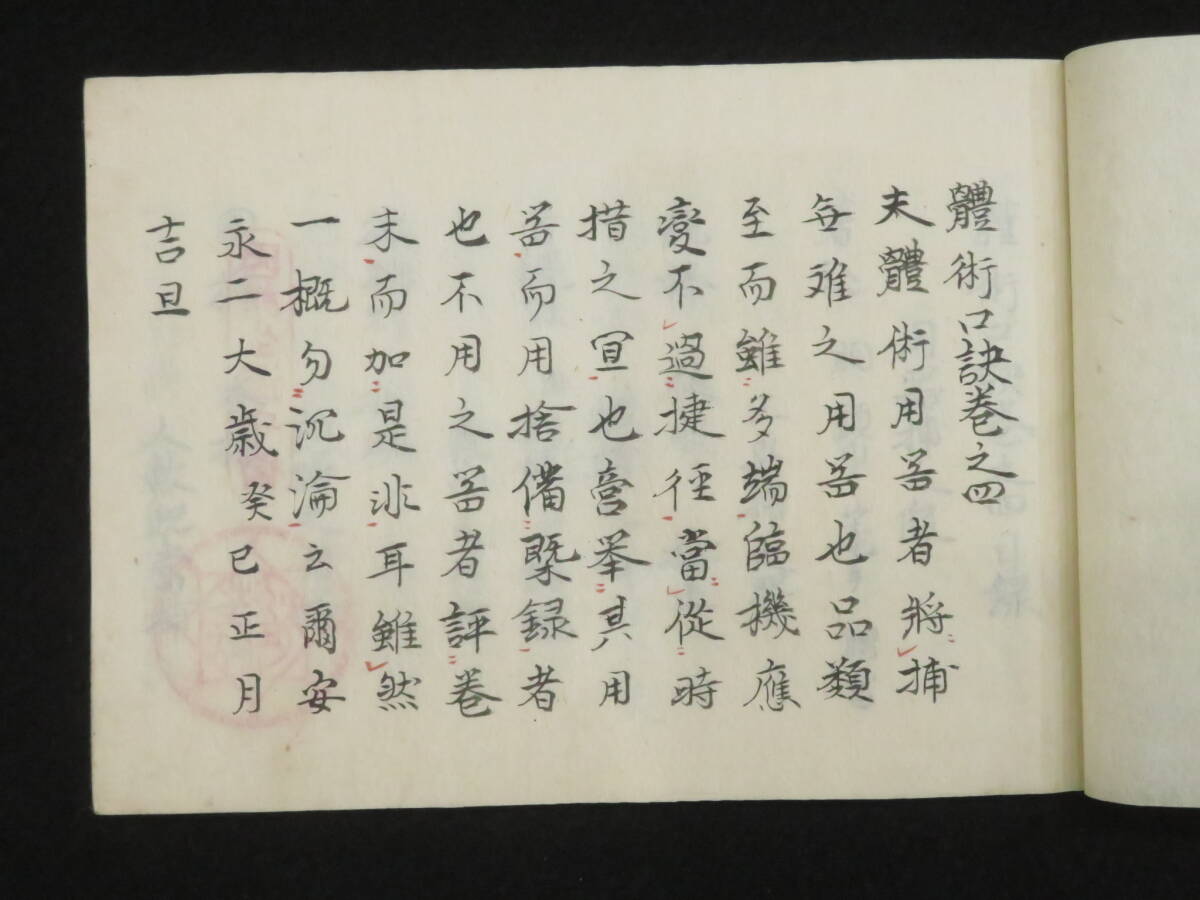 體術口訣巻之四
夫體術用噐者将捕
毎难之用噐也品類
至而雖多端臨機應
變不過捷徑當從時
措之宜也啻举其用
噐而用捨備槩録者
也不用之噐者評巻
末而加是非耳雖然
一概勿沉淪云爾安
永二大歳癸巳正月
吉旦